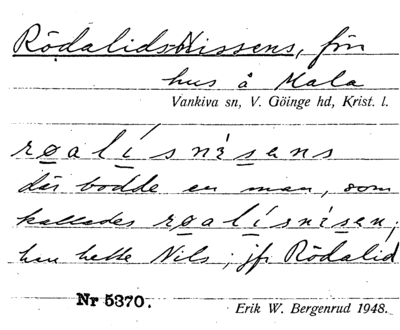 RödalidsNissens, frn
hus å Mala
Vankiva sn, V. Göinge hd, Krist. l.
røalísnìsens
där bodde en man, som
kallades røalísnìsen;
han hette Nils; jfr Rödalid
Nr 5370.
Erik W. Bergenrud 1948.